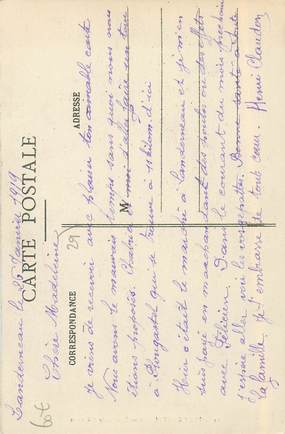 Landerneau le 26 Janvier 1919
CARTE POSTALE
Chère Madeleine,
CORRESPONDANCE
ADRESSE
M
29
Je viens de recevoir avec plaisir ton aimable carte
Nous avons le mauvais temps sans quoi nous nous
étions proposés Eusèbe et moi d'aller faire un tour
à Plougastel qui se trouve à 11 kilom. d'ici
Hier c'était le marché à Landerneau et je m'en
suis payé en marchandant des ponts ou des effets
avec Félicien. Dans le courant du mois prochain
j'espère aller voir les Bonne santé à toute
la famille je t'embrasse de tout cœur. Henri Claudon
6t